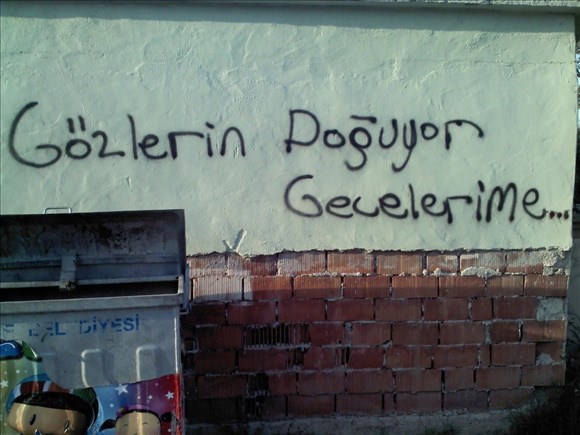 Gözlerin Doğuyor
Gecelerime...
BELEDİYESİ